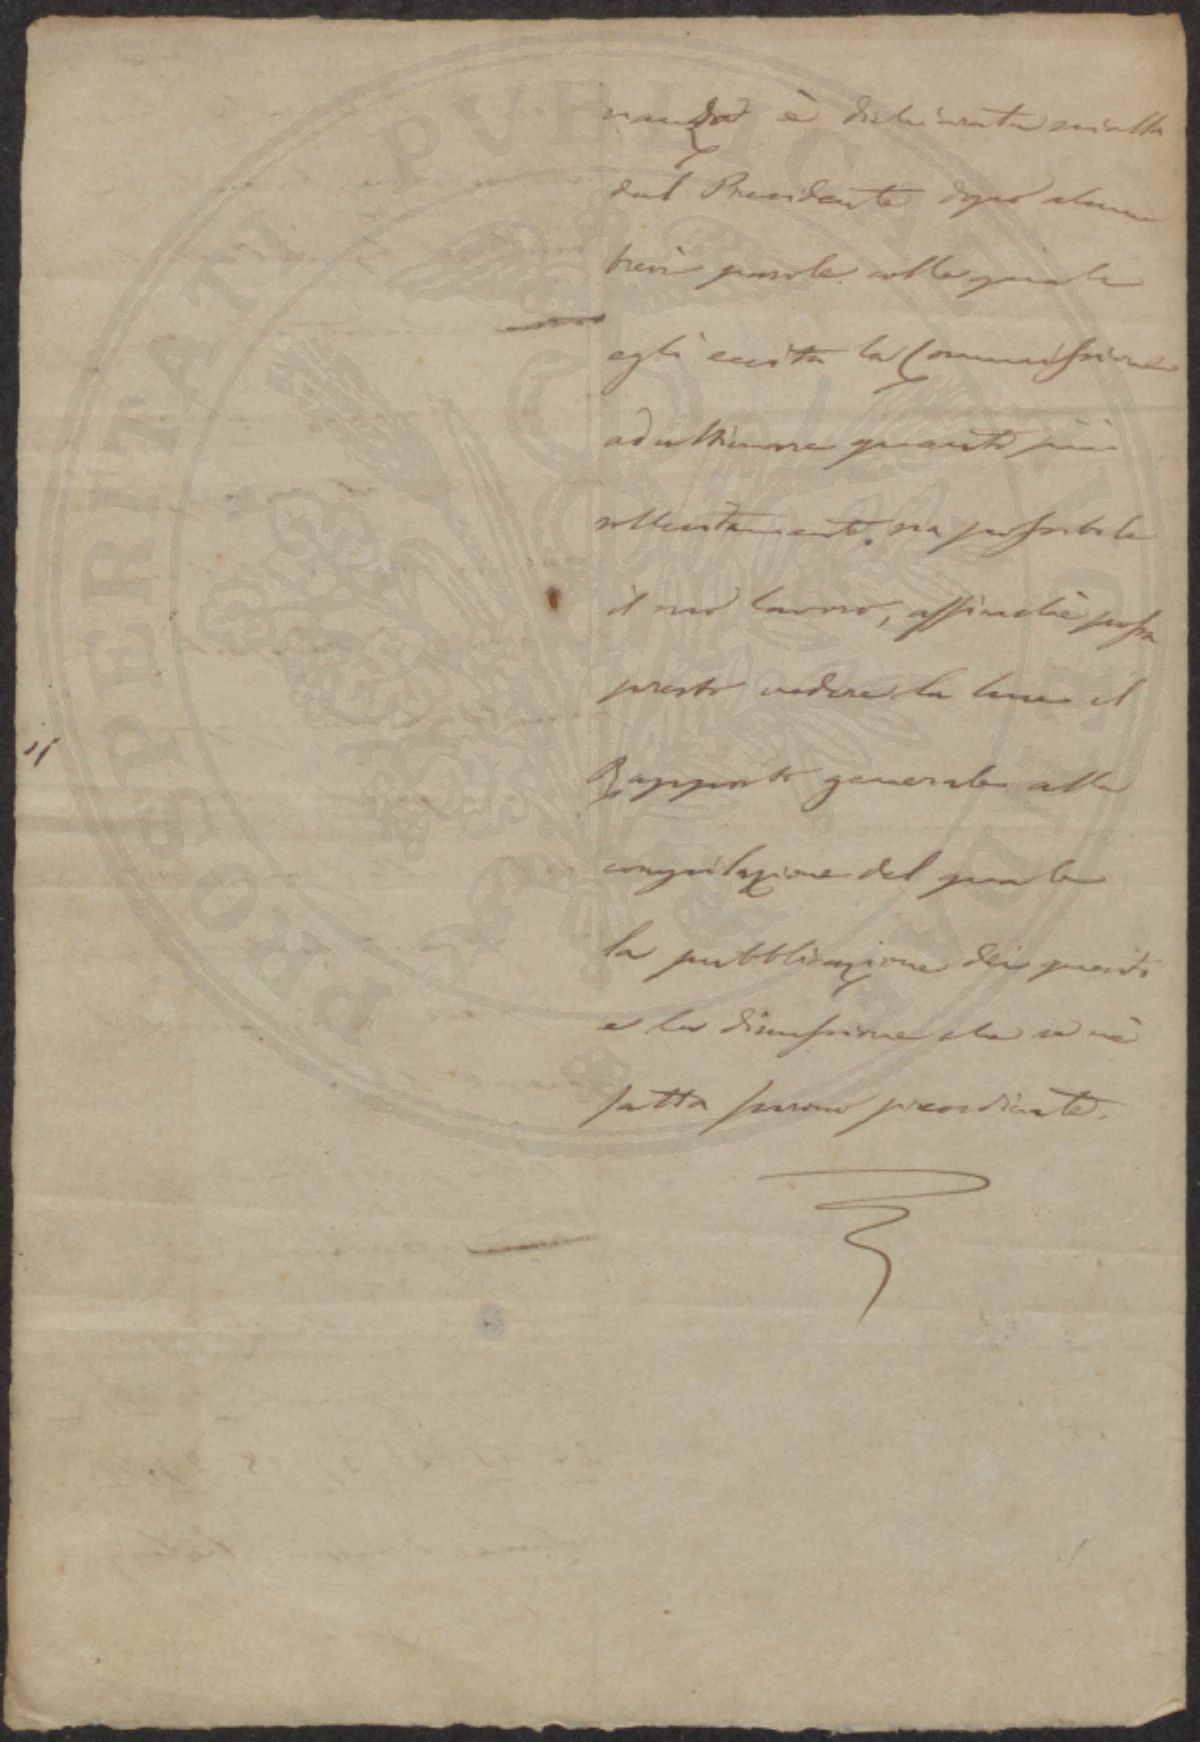 nanza è dichiarata sciolta
dal Presidente dopo alcune
brevi parole colle quali
egli eccita la Commissione
ad ultimare quanto più
sollecitamente sia possibile
il suo lavoro, affinchè possa
presto vedere la luce il
Rapporto generale alla
compilazione del quale
la pubblicazione dei quesiti
e la discussione che se n'è
fatta furono
PROSPERITATI PVBLICAE